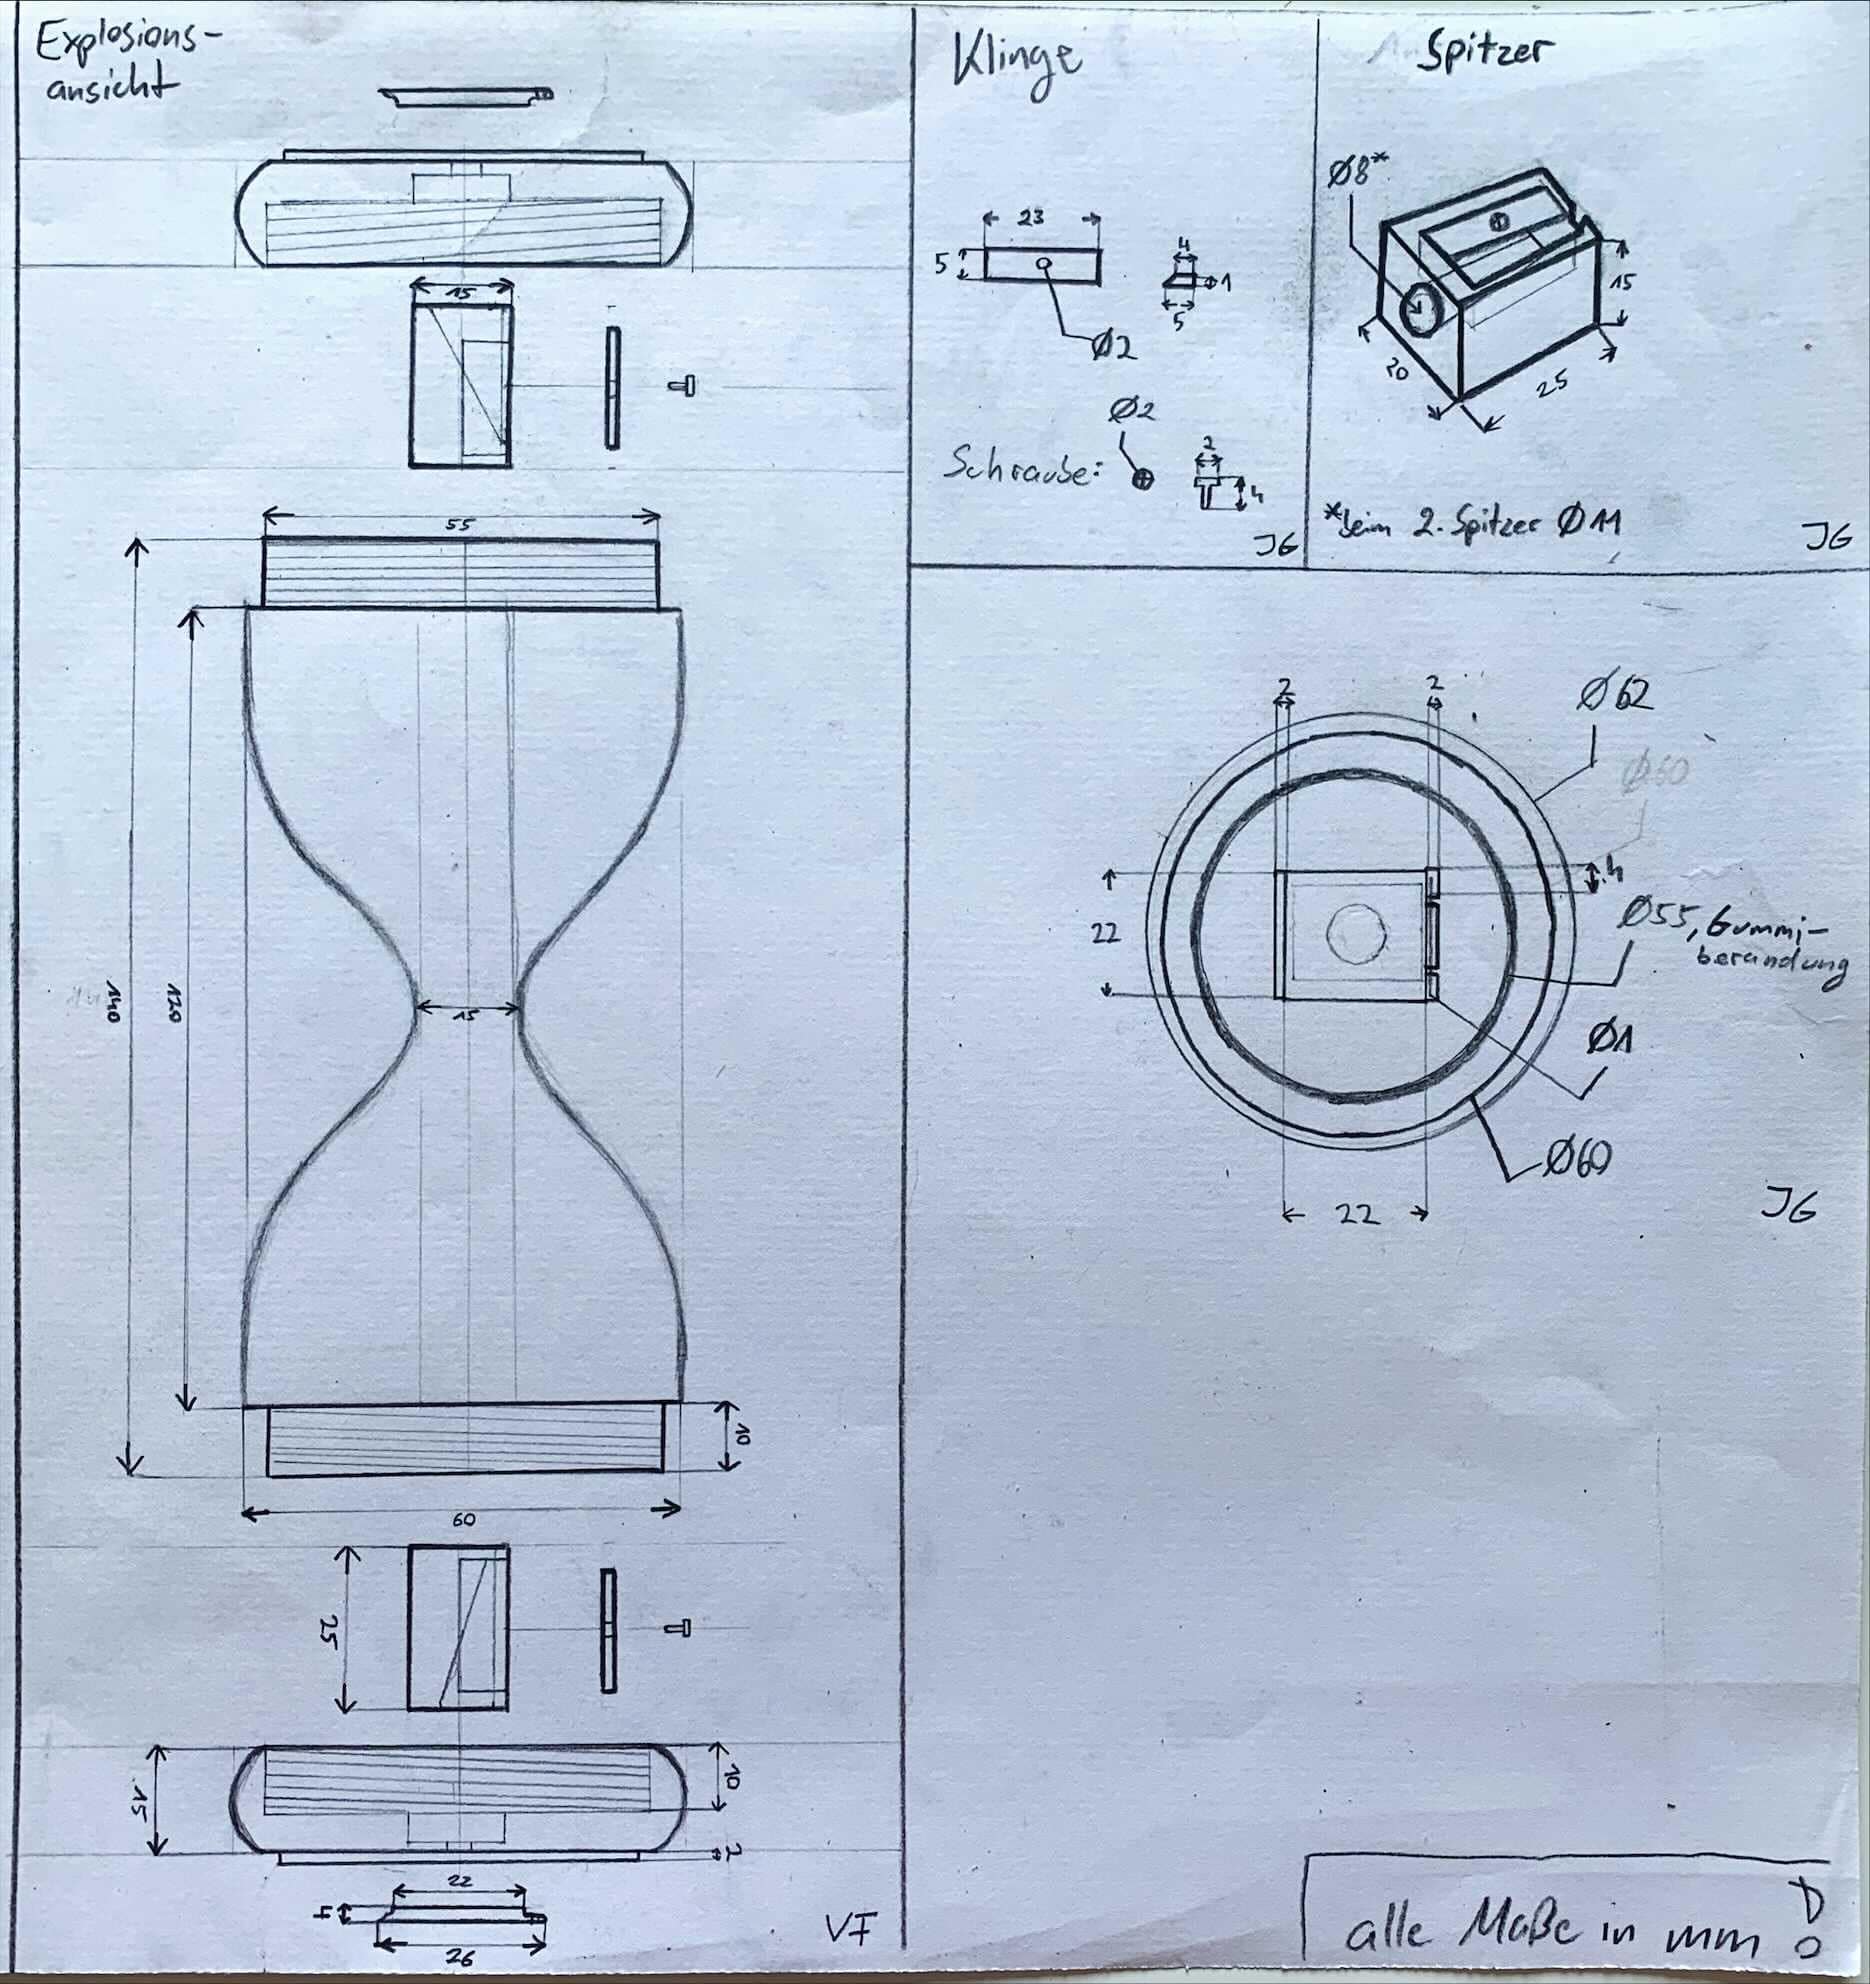 Explosions-
ansicht
15
55
140
120
15
10
60
25
15
10
2
22
4
26
VF
Klinge
23
5
4
1
5
Ø2
Ø2
Schraube:
2
4
JG
Spitzer
Ø8*
15
20
25
*beim 2. Spitzer Ø11
JG
2
2
Ø62
Ø60
4
22
Ø55, Gummi-
berandung
Ø1
Ø60
22
JG
alle Maße in mm !